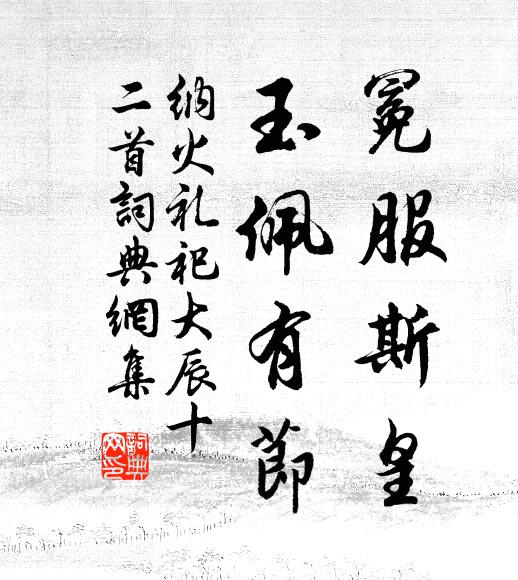 冕服斯皇
玉佩有節
纳火礼祀大辰十
二首詞典網集
詞典网印